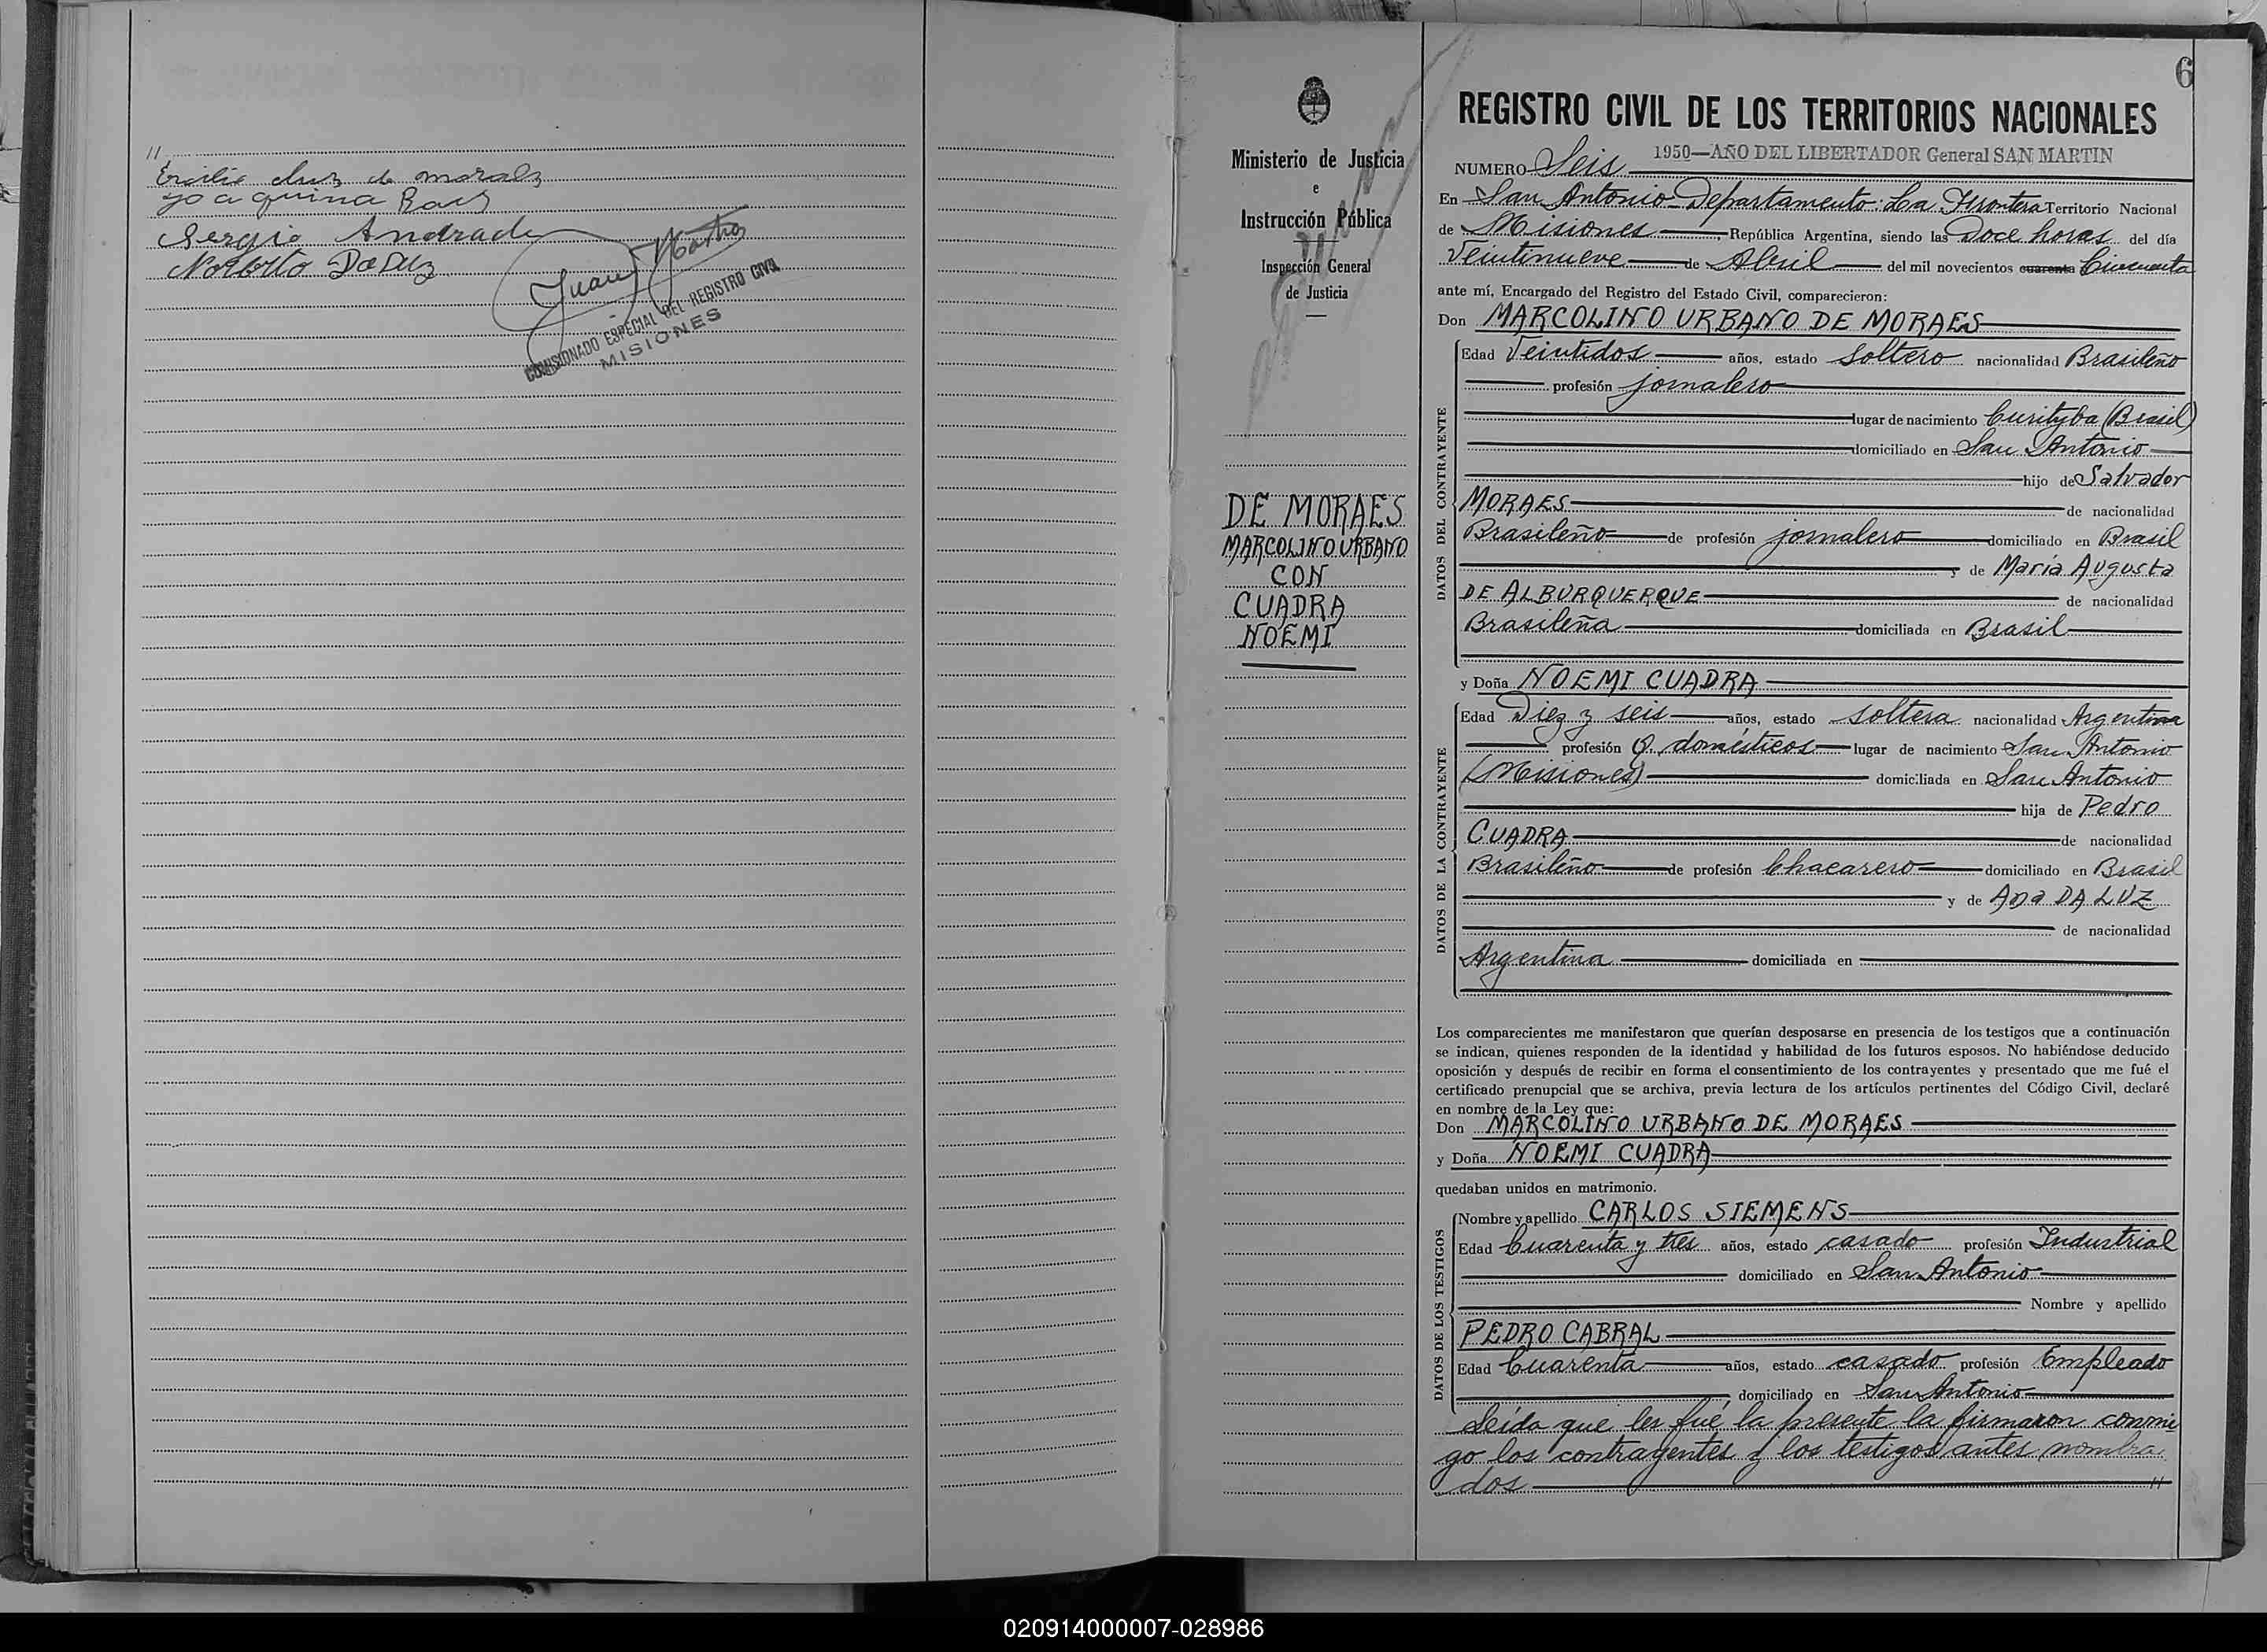 "
de moraes
Sergio Andrade
Norberto Da Luz
Juan
COMISIONADO ESPECIAL DEL REGISTRO CIVIL
MISIONES
Ministerio de Justicia
e
Instrucción Pública
Inspección General
de Justicia
DE MORAES
MARCOLINO URBANO
CON
CUADRA
NOEMI
6
REGISTRO CIVIL DE LOS TERRITORIOS NACIONALES
1950—AÑO DEL LIBERTADOR General SAN MARTIN
NUMERO Seis
En San Antonio - Departamento: La Frontera Territorio Nacional
de Misiones, República Argentina, siendo las Doce horas del día
Veintinueve de Abril del mil novecientos cuarenta Cincuenta
ante mí, Encargado del Registro del Estado Civil, comparecieron:
Don MARCOLINO URBANO DE MORAES
DATOS DEL CONTRAYENTE
Edad Veintidos años, estado soltero nacionalidad Brasileño
profesión jornalero
lugar de nacimiento Curityba (Brasil)
domiciliado en San Antonio
hijo de Salvador
MORAES de nacionalidad
Brasileño de profesión jornalero domiciliado en Brasil
y de María Augusta
DE ALBURQUERQUE de nacionalidad
Brasileña domiciliada en Brasil
y Doña NOEMI CUADRA
DATOS DE LA CONTRAYENTE
Edad Diez y seis años, estado soltera nacionalidad Argentina
profesión Q. domésticos lugar de nacimiento San Antonio
(Misiones) domiciliada en San Antonio
hija de Pedro
CUADRA de nacionalidad
Brasileño de profesión Chacarero domiciliado en Brasil
y de Ana DA LUZ
de nacionalidad
Argentina domiciliada en
Los comparecientes me manifestaron que querían desposarse en presencia de los testigos que a continuación
se indican, quienes responden de la identidad y habilidad de los futuros esposos. No habiéndose deducido
oposición y después de recibir en forma el consentimiento de los contrayentes y presentado que me fué el
certificado prenupcial que se archiva, previa lectura de los artículos pertinentes del Código Civil, declaré
en nombre de la Ley que:
Don MARCOLINO URBANO DE MORAES
y Doña NOEMI CUADRA
quedaban unidos en matrimonio.
DATOS DE LOS TESTIGOS
Nombre y apellido CARLOS SIEMENS
Edad Cuarenta y tres años, estado casado profesión Industrial
domiciliado en San Antonio
Nombre y apellido
PEDRO CABRAL
Edad Cuarenta años, estado casado profesión Empleado
domiciliado en San Antonio
Leída que les fué la presente la firmaron conmi
go los contrayentes y los testigos antes nombra
dos "
020914000007-028986